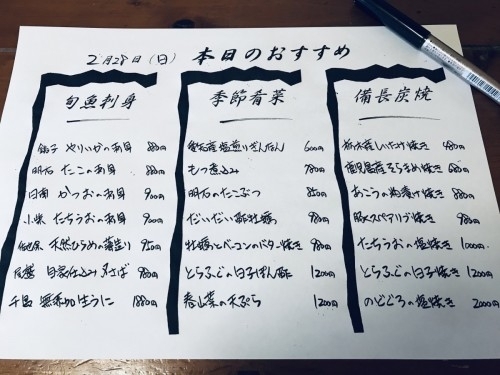 2月28日(日) 本日のおすすめ
旬魚刺身
銚子 やりいかのお刺身 880円
明石 たこのお刺身 880円
日南 かつおのお刺身 900円
たちうおのお刺身 900円
天然ひらめの薄造り 950円
自家仕込み〆さば 980円
千島 無添加生うに 1880円
季節肴菜
塩煎りぎんなん 600円
もつ煮込み 780円
明石のたこぶつ 850円
だいだい酢牡蠣 980円
牡蠣とベーコンのバター焼き 980円
とらふぐの白子ぽん酢 1200円
春山菜の天ぷら 1200円
備長炭焼
栃木産しいたけ焼き 480円
鹿児島産そらまめ焼き 680円
あこうの粕漬け焼き 880円
豚スペアリブ焼き 980円
たちうおの塩焼き 1000円
とらふぐの白子焼き 1200円
のどぐろの塩焼き 2000円